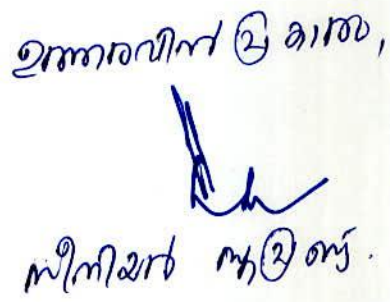 ഉത്തരവിൻ പ്രകാരം,
സീനിയർ സൂപ്രണ്ട്.